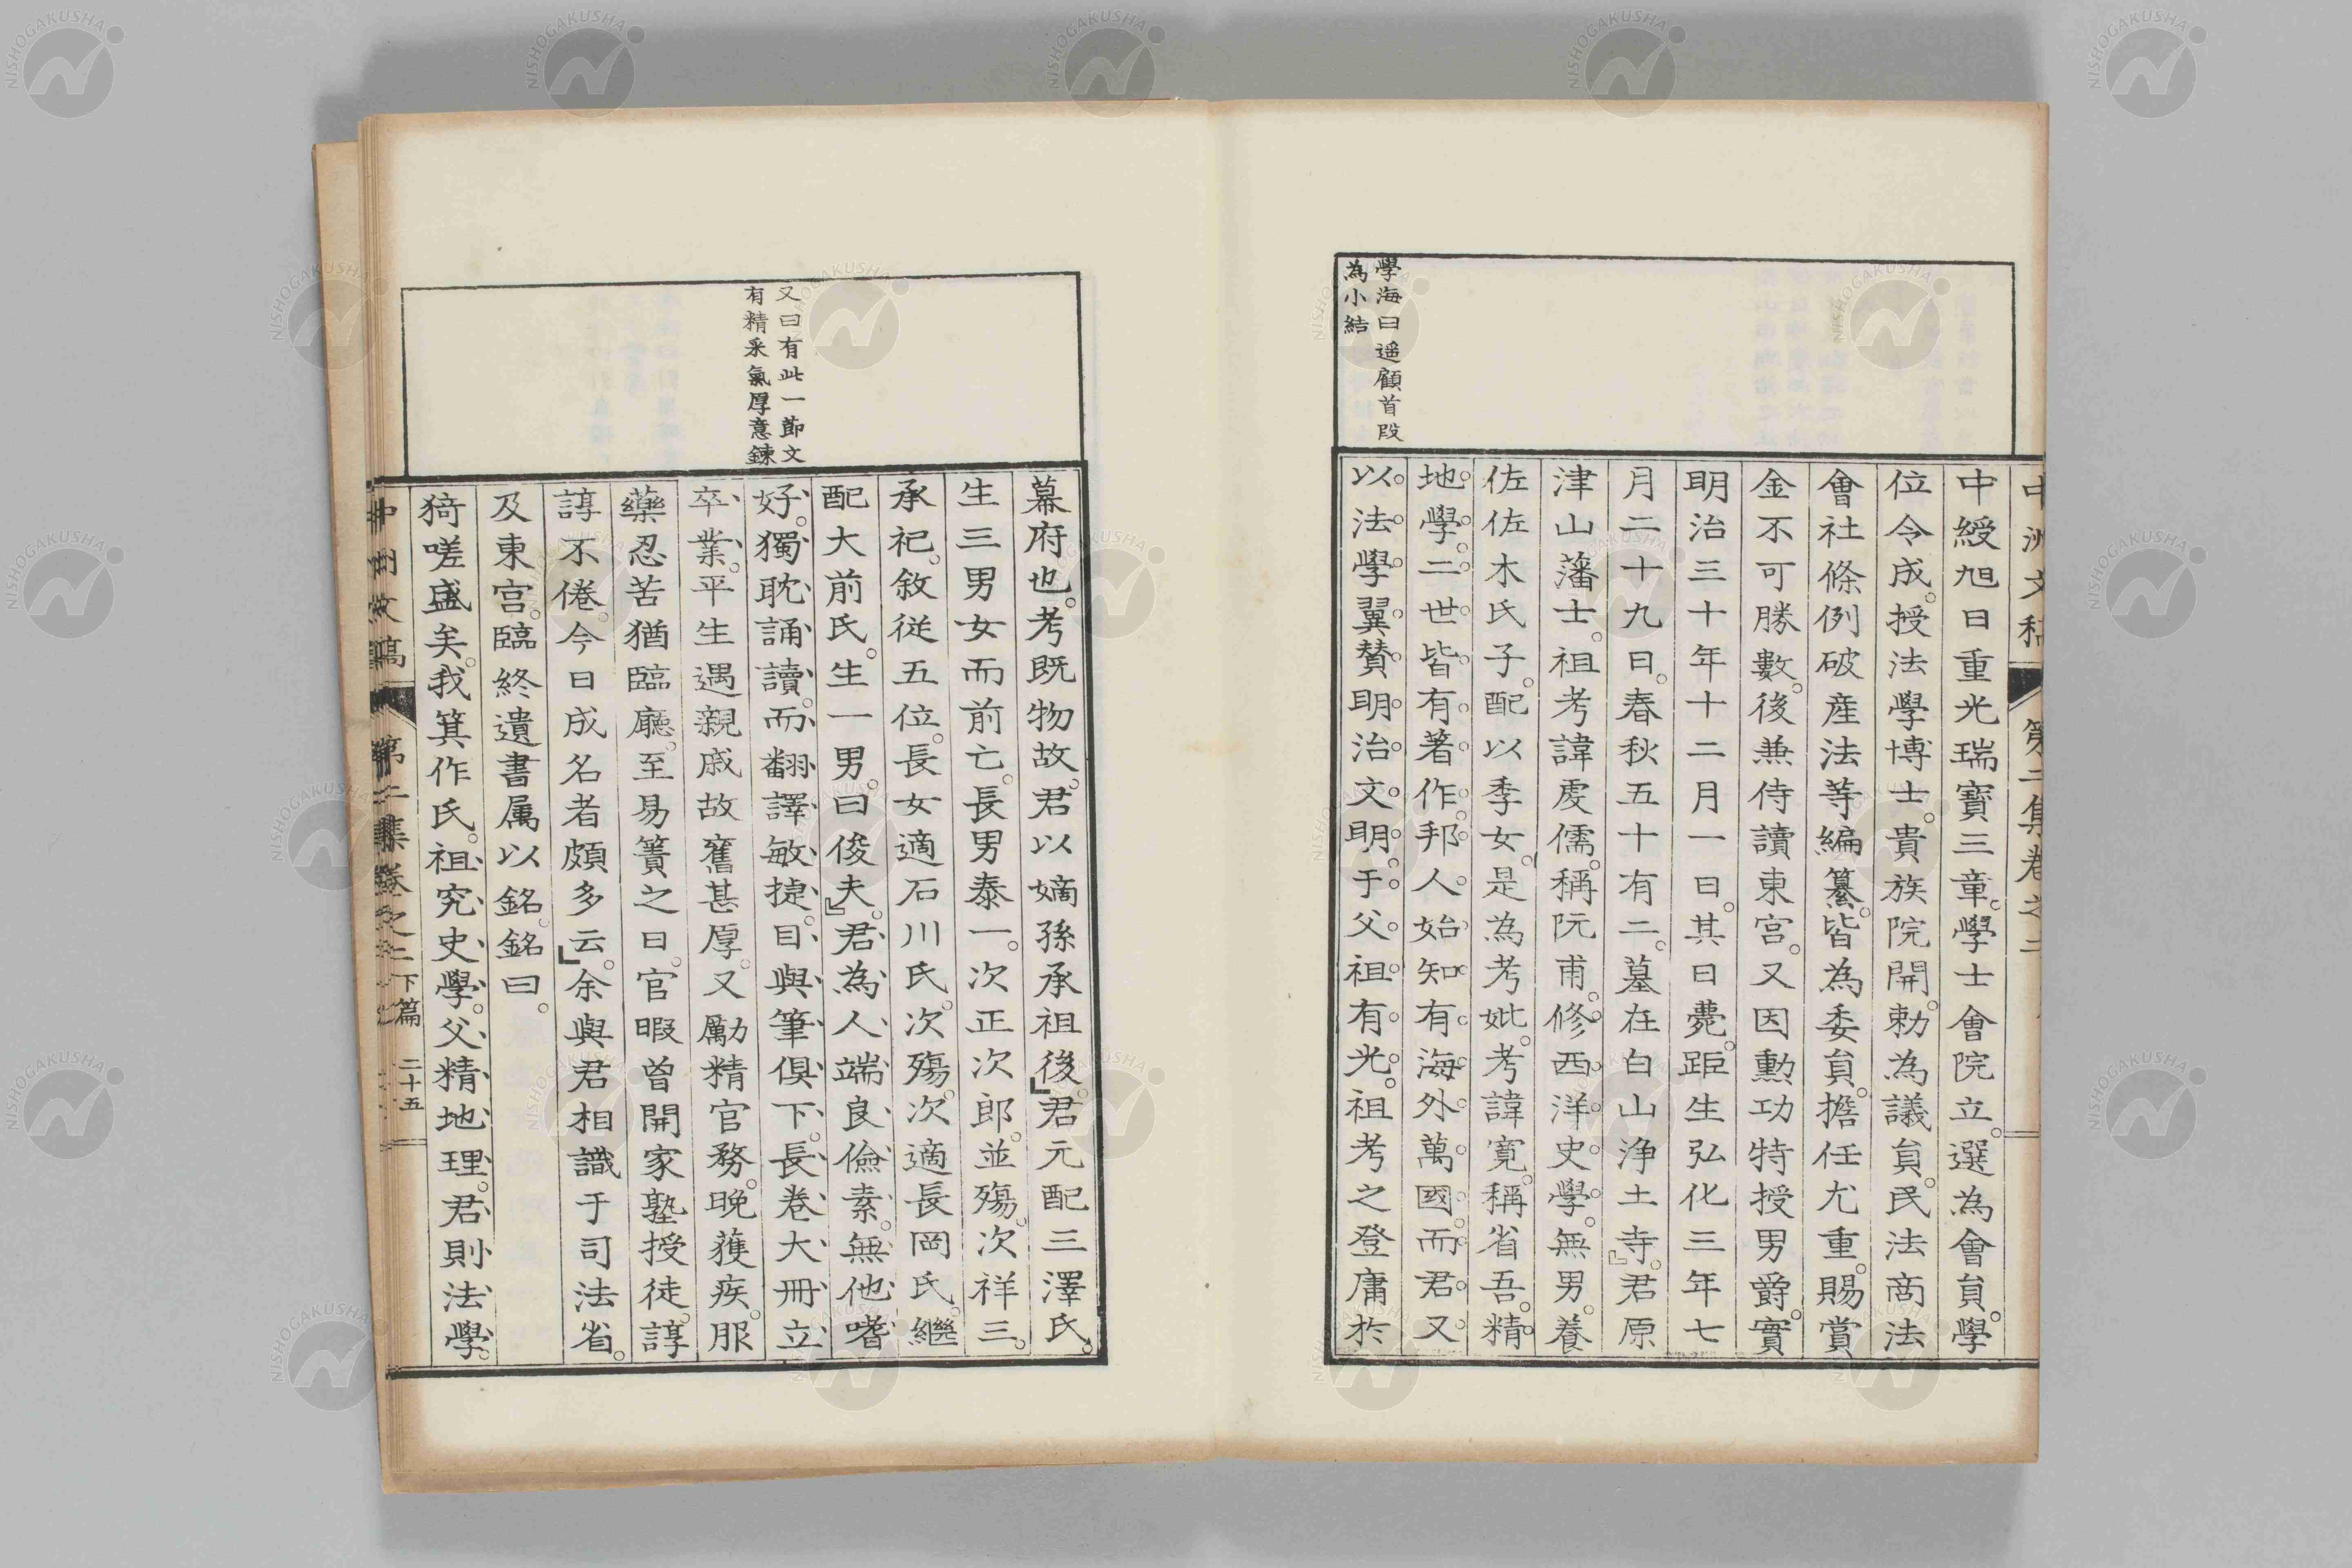 中洲文稿 第二集卷之二
中綬旭日重光瑞寶三章。學士會院立。選為會員。學
位令成。授法學博士。貴族院開。勅為議員。民法商法
會社條例破産法等編纂。皆為委員。擔任尤重。賜賞
金不可勝數。後兼侍讀東宮。又因勳功特授男爵。實
明治三十年十二月一日。其日薨。距生弘化三年七
月二十九日。春秋五十有二。墓在白山浄土寺。」君原
津山藩士。祖考諱虔儒。稱阮甫。修西洋史學。無男。養
佐佐木氏子。配以季女。是為考妣。考諱寛。稱省吾。精
地學。二世皆有著作。邦人始知有海外萬國。而君又
以法學翼賛明治文明。于父祖有光。祖考之登庸於
學海曰遥顧首段
為小結
幕府也。考既物故。君以嫡孫承祖後。」君元配三澤氏。
生三男女而前亡。長男泰一。次正次郎。並殤。次祥三。
承祀。敘從五位。長女適石川氏。次殤。次適長岡氏。繼
配大前氏。生一男。曰俊夫。」君為人端良儉素。無他嗜
好。獨耽誦讀。而翻譯敏捷。目與筆俱下。長巻大冊立
卒業。平生遇親戚故舊甚厚。又勵精官務。晩獲疾。服
藥忍苦猶臨廳。至易簀之日。官暇曽開家塾授徒。諄
諄不倦。今日成名者頗多云。」余與君相識于司法省。
及東宮。臨終遺書属以銘。銘曰。
猗嗟盛矣。我箕作氏。祖究史學。父精地理。君則法學。
又曰有此一節文
有精采氣厚意鍊
中洲文稿 第二集卷之二下篇 二十五